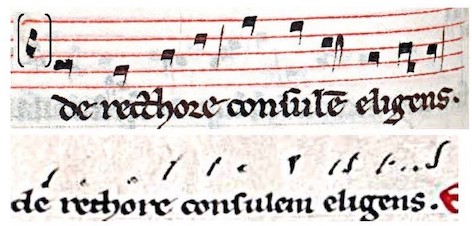 de recthore conſulē eligens.
de recthore conſulem eligens.